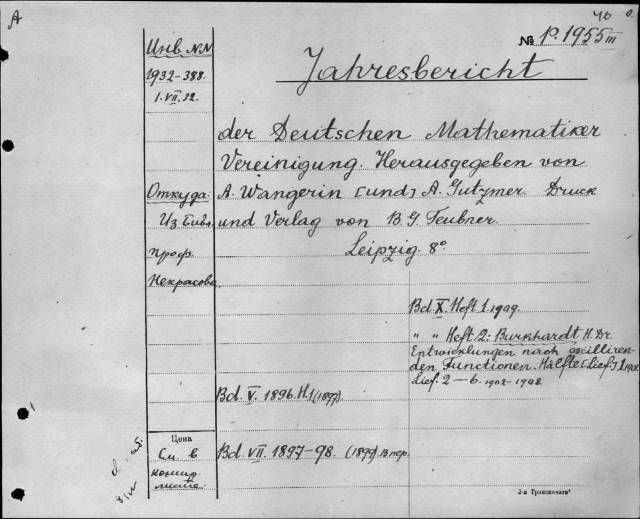 A
46
№ P.1955 III
Инв. NN
1932-388.
1.VII.32.
Jahresbericht
der Deutschen Mathematiker
Vereinigung. Herausgegeben von
Откуда:
A. Wangerin [und] A. Gutzmer Druck
Из Библ.
und Verlag von B. G. Teubner.
проф.
Leipzig 8°
Некрасова
Bd. X. Heft 1. 1909.
" " Heft 2: Burkhardt, H. Dr.
Entwicklungen nach oscilliren-
den Functionen. Hälfte [Lief.] 1
Lief. 2—6. 1902-1908
Bd. V. 1896. H.1 (1897).
Цена
См. в
Bd. VII. 1897-98. (1899) В пер.
2-я Гранпечать